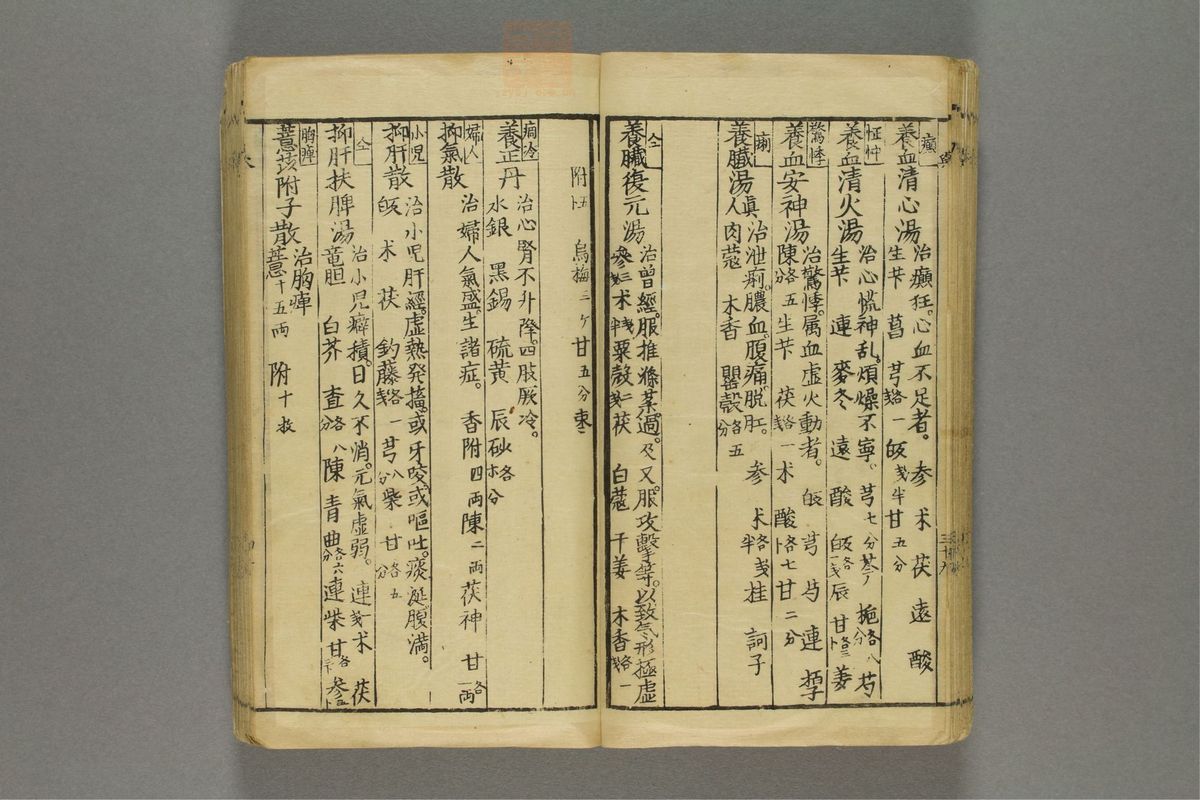 癲
養血清心湯
治癲狂。心血不足者。 参 朮 茯 遠 酸
生芐 菖 芎各一戔 皈戔半 甘五分
怔忡
養血清火湯
治心慌神乱。煩燥不寧。 芎七分 芩 梔各八分 芍
生芐 連 麥冬 遠 酸 皈各一戔 辰 甘各三卜 姜
驚悸
養血安神湯
治驚悸。属血虚火動者。 皈 芎 芍 連
陳各五分 生芐 茯各一戔 朮 酸各七卜 甘二分
痢
養臓湯
治泄痢。膿血。腹痛。脱肛。 参 朮各半戔 桂 訶子
真人 肉蔲 木香 罌殼各五分
仝
養臓復元湯
治曽經。服推滌菜過。及又服攻擊等。以致气形極虚
参三戔 朮半戔 粟殼二戔 茯 白蔲 干姜 木香各一戔
附五卜 烏梅三ケ 甘五分 枣二
痼冷
養正丹
治心腎不升降。四肢厥冷。
水銀 黑錫 硫黄 辰砂各分
婦人
抑氣散
治婦人氣盛。生諸症。 香附四両 陳二両 茯神 甘各一両
小児
抑肝散
治小児肝經。虚熱発搐。或牙咬。或嘔吐。痰涎腹満。
皈 朮 茯 釣藤各一戔 芎八分 柴 甘各五分
仝
抑肝扶脾湯
治小児癖積。日久不消。元氣虚弱。 連一戔 朮 茯
竜胆 白芥 査各八分 陳 青 曲各六分 連 柴 甘各三卜 参五卜
胸痺
薏苡附子散
治胸痺
薏十五両 附十枚